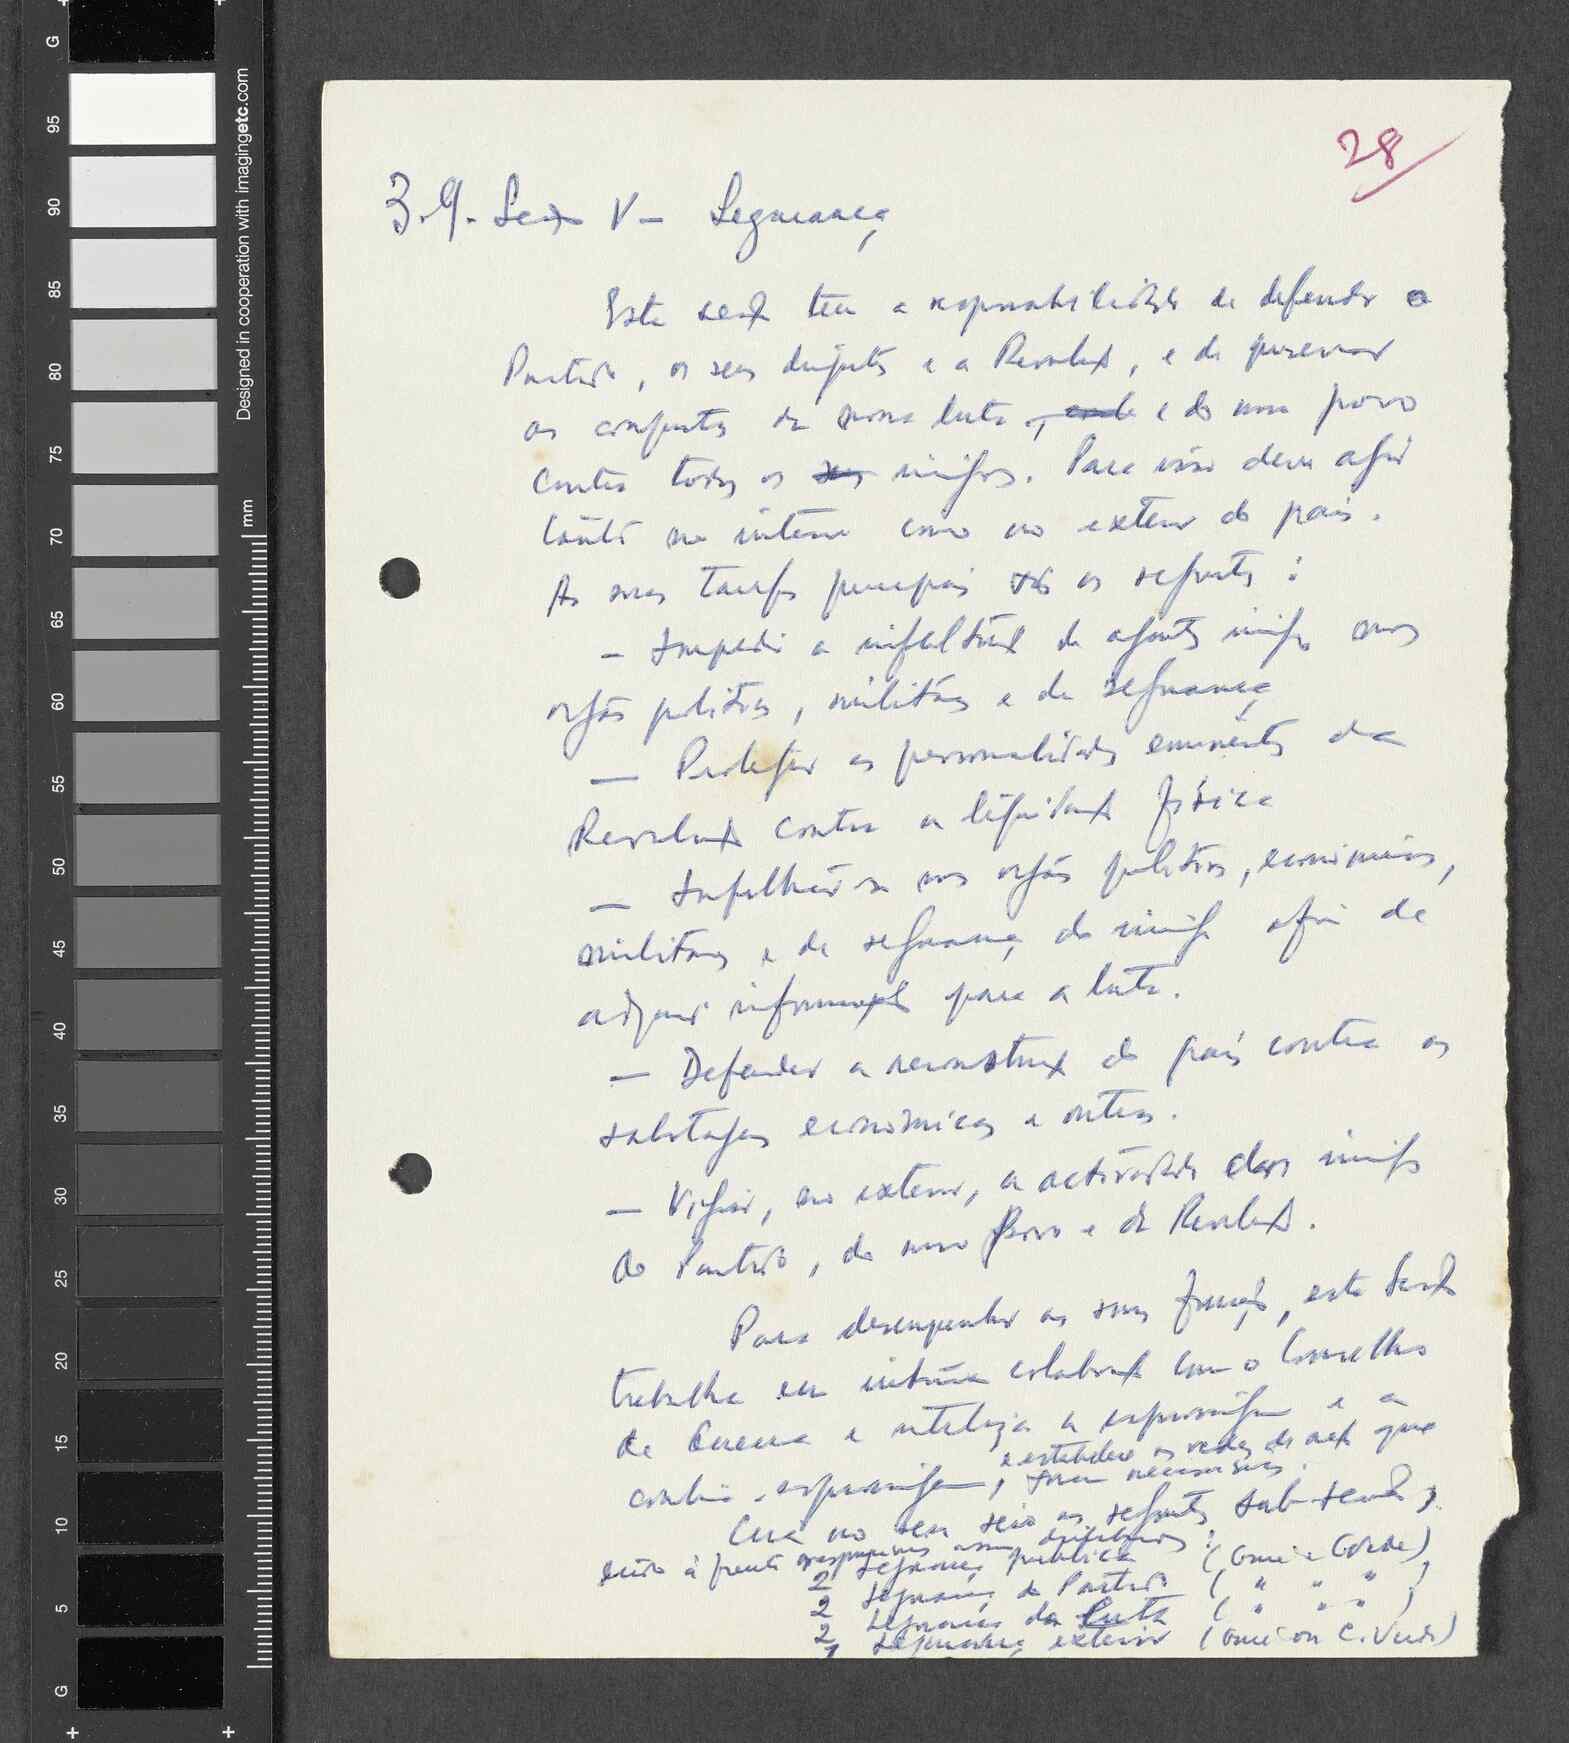 28
3.9. Secção V — Segurança
Esta secção tem a responsabilidade de defender o
Partido, os seus dirigentes e a Revolução, e de preservar
as conquistas da nossa luta, e do nosso povo
contra todos os inimigos. Para isso deve agir
tanto no interior como no exterior do país.
As suas tarefas principais são as seguintes:
— Impedir a infiltração de agentes inimigos nos
orgãos politicos, militares e de segurança
— Proteger as personalidades eminentes da
Revolução contra a liquidação fisica
— nos orgãos politicos, económicos,
militares e de segurança do inimigo afim de
adquirir informações para a luta.
— Defender a reconstrução do país contra as
sabotagens económicas e outras.
— Vigiar, no exterior, a actividade dos inimigos
do Partido, do nosso Povo e da Revolução.
Para desempenhar as suas funções, esta Secção
trabalha em intima colaboração com o Conselho
de Guerra e utiliza a espionagem e a
contra-espionagem, e estabelece as redes de acção que
forem necessárias.
Cria no seu seio as seguintes sub-secções,
tendo à frente responsáveis assim distribuidos:
2 Segurança publica (Guiné e C. Verde)
2 Segurança do Partido ( " " " )
2 Segurança da Luta ( " " " )
1 Segurança exterior (Guiné ou C. Verde)
G
95
90
85
80
75
70
65
60
55
50
45
40
35
30
25
20
15
10
5
G
mm
Designed in cooperation with imagingetc.com